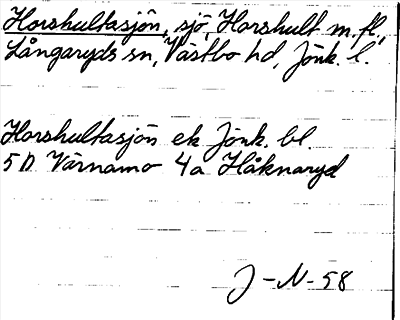 Horshultasjön, sjö, Horshult m.fl.,
Långaryds sn, Västbo hd, Jönk. l.
Horshultasjön ek Jönk. bl.
5D Värnamo 4a Håknaryd
J-N-58